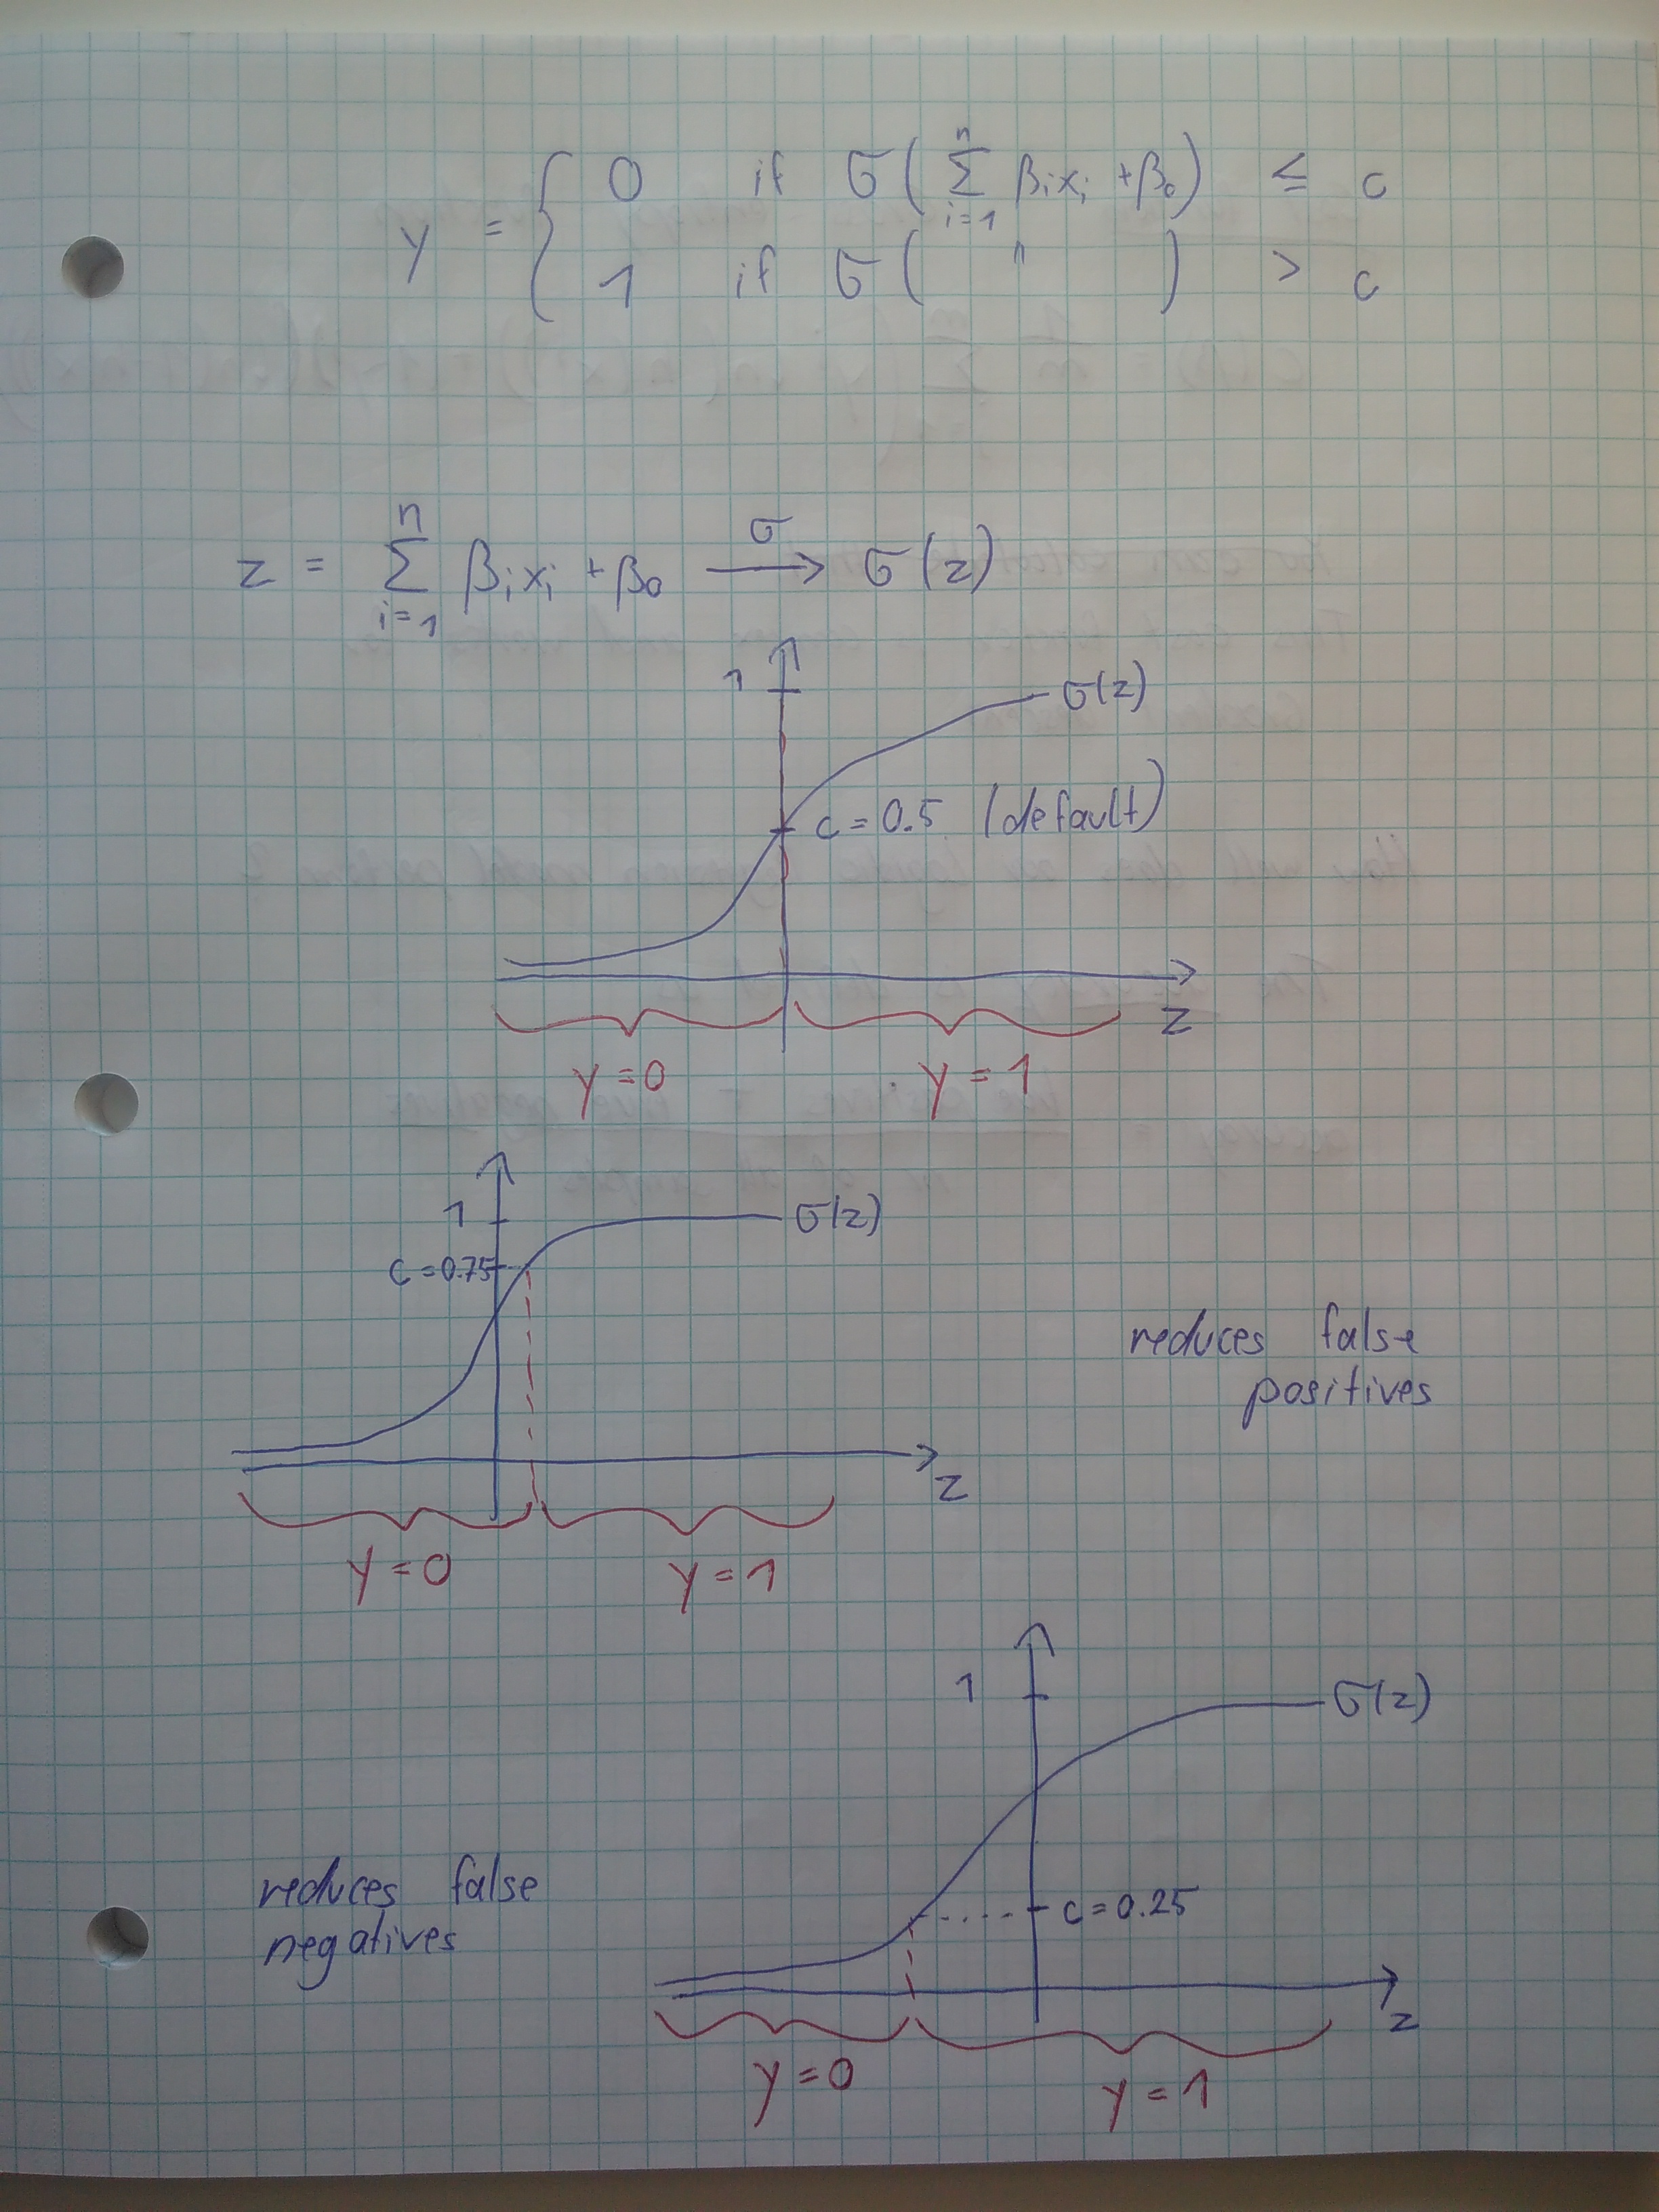 y = { 0 if σ( ∑_{i=1}^{n} β_i x_i + β_0 ) ≤ c
1 if σ( " ) > c
z = ∑_{i=1}^{n} β_i x_i + β_0 —σ→ σ(z)
1 σ(z)
c = 0.5 (default)
z
y = 0 y = 1
1 σ(z)
c = 0.75
reduces false
positives
z
y = 0 y = 1
1 σ(z)
reduces false
negatives
c = 0.25
z
y = 0 y = 1